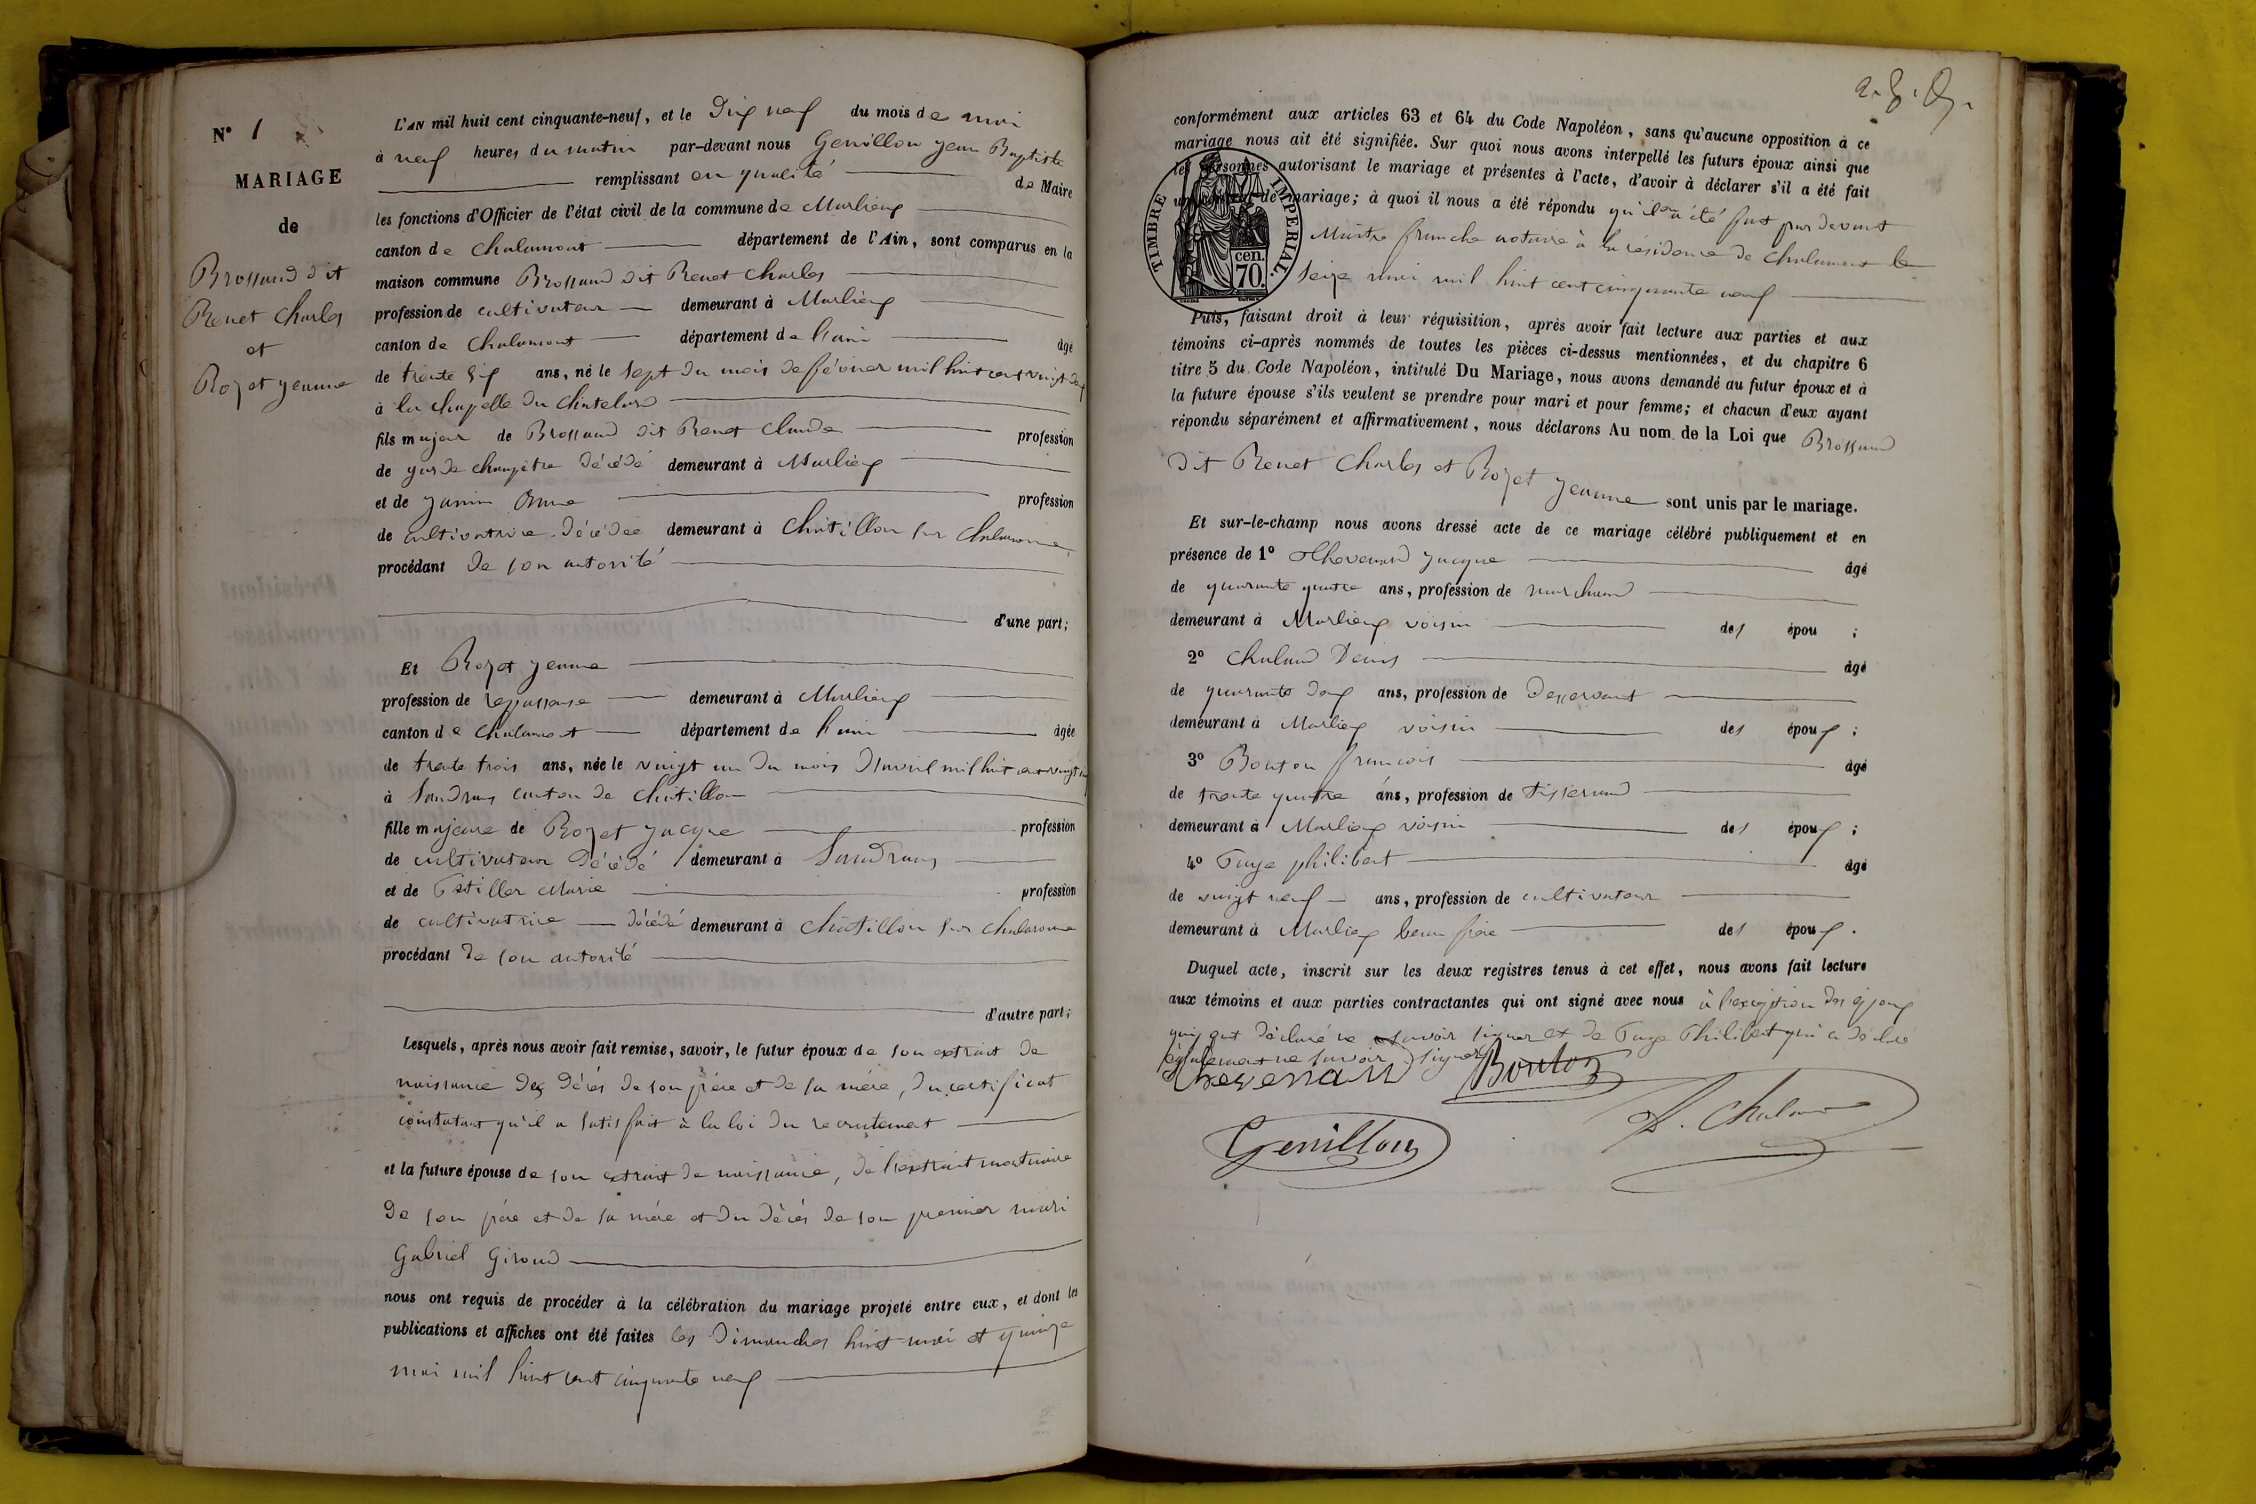 N° 1
MARIAGE
de
Brossaud dit
Renet Charles
et
Rozet jeanne
L'AN mil huit cent cinquante-neuf, et le Dix neuf du mois de mai
à neuf heures du matin par-devant nous Genillon jean Baptiste
remplissant en qualité de Maire
les fonctions d'Officier de l'état civil de la commune de Marlieux
canton de Chalamont département de l'Ain, sont comparus en la
maison commune Brossaud dit Renet Charles
profession de cultivateur demeurant à Marlieux
canton de Chalamont département de l'ain âgé
de trente six ans, né le sept du mois de février mil huit cent vingt deux
à la chapelle du Châtelard
fils majeur de Brossaud dit Renet Claude profession
de garde champêtre décédé demeurant à Marlieux
et de janin Anne profession
de cultivatrice décédée demeurant à Châtillon sur Chalaronne
procédant de son autorité
d'une part;
Et Rozet jeanne
profession de repasseuse demeurant à Marlieux
canton de Chalamont département de l'ain âgée
de trente trois ans, née le vingt un du mois d'avril mil huit cent vingt
à Sandrans canton de Châtillon
fille majeure de Rozet jacque profession
de cultivateur décédé demeurant à Sandrans
et de Marie profession
de cultivatrice décédé demeurant à Châtillon sur Chalaronne
procédant de son autorité
d'autre part;
Lesquels, après nous avoir fait remise, savoir, le futur époux de son extrait de
naissance des décès de son père et de sa mère, du certificat
constatant qu'il a satisfait à la loi du recrutement
et la future épouse de son extrait de naissance, de l'extrait mortuaire
de son père et de sa mère et du décès de son premier mari
Gabriel Giroud
nous ont requis de procéder à la célébration du mariage projeté entre eux, et dont les
publications et affiches ont été faites les dimanches huit mai et quinze
mai mil huit cent cinquante neuf
conformément aux articles 63 et 64 du Code Napoléon, sans qu'aucune opposition à ce
mariage nous ait été signifiée. Sur quoi nous avons interpellé les futurs époux ainsi que
les personnes autorisant le mariage et présentes à l'acte, d'avoir à déclarer s'il a été fait
un contrat de mariage; à quoi il nous a été répondu qu'il en a été fait par devant
Maitre franche notaire à la résidence de Chalamont le
Seize mai mil huit cent cinquante neuf
TIMBRE IMPERIAL.
cen.
70.
Puis, faisant droit à leur réquisition, après avoir fait lecture aux parties et aux
témoins ci-après nommés de toutes les pièces ci-dessus mentionnées, et du chapitre 6
titre 5 du Code Napoléon, intitulé Du Mariage, nous avons demandé au futur époux et à
la future épouse s'ils veulent se prendre pour mari et pour femme; et chacun d'eux ayant
répondu séparément et affirmativement, nous déclarons Au nom de la Loi que Brossaud
dit Renet Charles et Rozet jeanne sont unis par le mariage.
Et sur-le-champ nous avons dressé acte de ce mariage célébré publiquement et en
présence de 1° Chevenard jacque âgé
de quarante quatre ans, profession de marchand
demeurant à Marlieux voisin des épou ;
2° Chaland Denis âgé
de quarante deux ans, profession de Desservant
demeurant à Marlieux voisin des époux ;
3° Bouton francois âgé
de trente quatre ans, profession de tisserand
demeurant à Marlieux voisin des époux ;
4° philibert âgé
de vingt neuf ans, profession de cultivateur
demeurant à Marlieux beau frère des époux .
Duquel acte, inscrit sur les deux registres tenus à cet effet, nous avons fait lecture
aux témoins et aux parties contractantes qui ont signé avec nous à l'exception des époux
qui ont déclaré ne savoir signer et de Philibert qui a déclaré
également ne savoir signer
Chevenard Bouton
Genillon